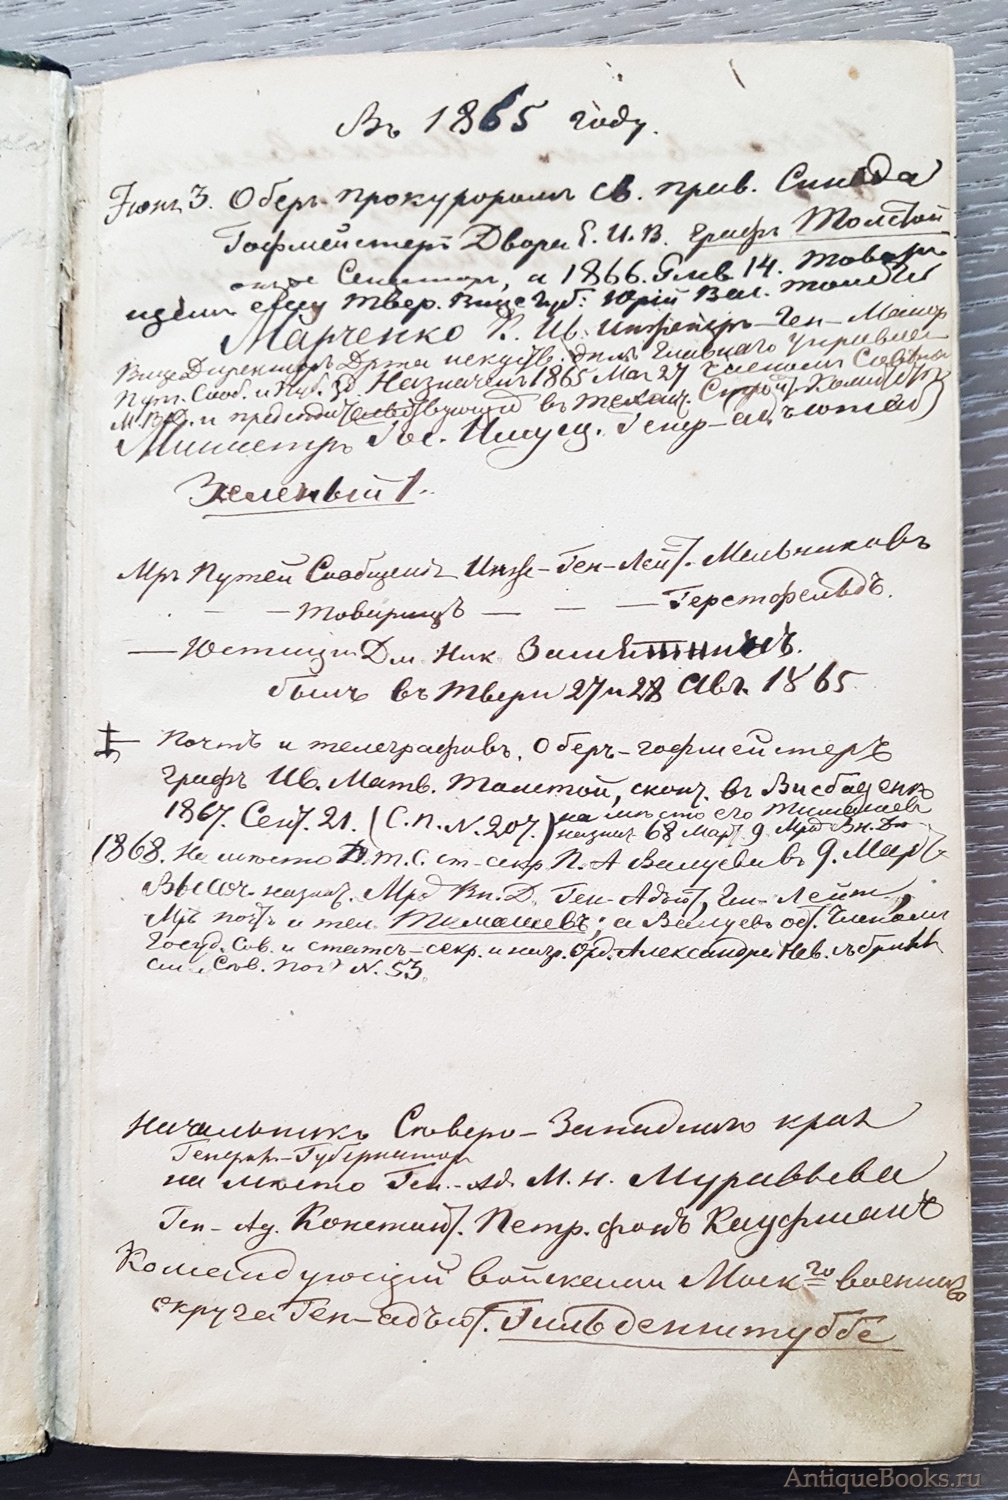 Въ 1865 году.
Іюнь 3. Оберъ прокуроромъ Св. прав. Синода
Гофмейстеръ Двора Е. И. В. графъ Толстой
Сенаторъ, а 1866. 14. Товар
ищемъ ему Твер. Вице Губ. Юрій Вас. Толстой
Марченко К. Ив. Инженеръ-Ген-Маіоръ
Вице Директоръ Д-рта искуств. дѣлъ Главнаго Управлен
Пут. Сооб. и Пуб. Зд. Назначенъ 1865 Мая 27 Членомъ Совѣта
М. В. Д. и предсѣдательствующій въ Технич. Строит. Комитетѣ
Министръ Гос. Имущ. Генер-адъютан
Зеленый 1.
Мръ Путей Сообщенія Инже-Ген-Лейт. Мельниковъ
— — Товарищъ — — — Герстфельдъ.
— Юстиціи Дм. Ник. Замятнинъ.
былъ въ Твери 27 и 28 Авг. 1865
— Почтъ и телеграфовъ, Оберъ-гофмейстеръ
графъ Ив. Матв. Толстой, сконч. въ Висбаденѣ
1867. Сент. 21. (С. П. N. 207.) на мѣсто его Тимашевъ
назнач. 68 Март. 9. Мръ Вн. Дѣ
1868. На мѣсто Д. Т. С. ст-секр. П. А Валуева въ 9. Март
Высоч. назнач. Мръ Вн. Д. Ген-Адъют, Ген-Лейт,
Мръ почтъ и тел. Тимашевъ; а Валуевъ ост. Членомъ
Госуд. Сов. и статсъ-секр. и нагр. Орд. Александра Нев. съ брил
Сѣв. Поч. N. 53.
Начальникъ Сѣверо-Западнаго края
Генералъ-Губернаторъ
на мѣсто Ген.-Ад. М. Н. Муравьева
Ген-Ад. Констант. Петр. фонъ Кауфманъ
Командующій войсками Моск-го военнаго
округа Ген-адъют. Гильденштуббе
AntiqueBooks.ru